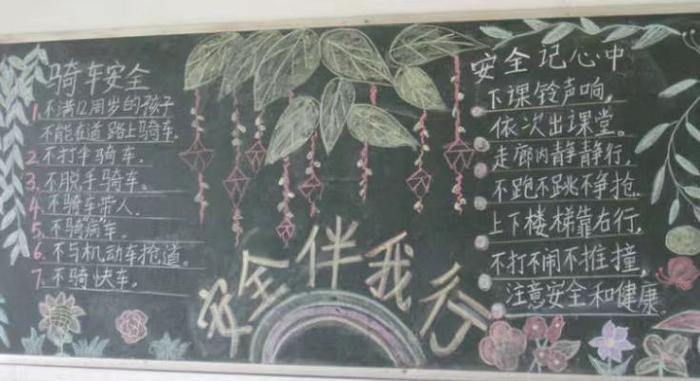 骑车安全
1.不满12周岁的孩子
不能在道路上骑车.
2.不打伞骑车.
3.不脱手骑车。
4.不骑车带人.
5.不骑病车.
6.不与机动车抢道。
7.不骑快车.
安全伴我行
安全记心中
下课铃声响,
依次出课堂。
走廊内静静行,
不跑不跳不争抢.
上下楼梯靠右行,
不打不闹不推撞,
注意安全和健康